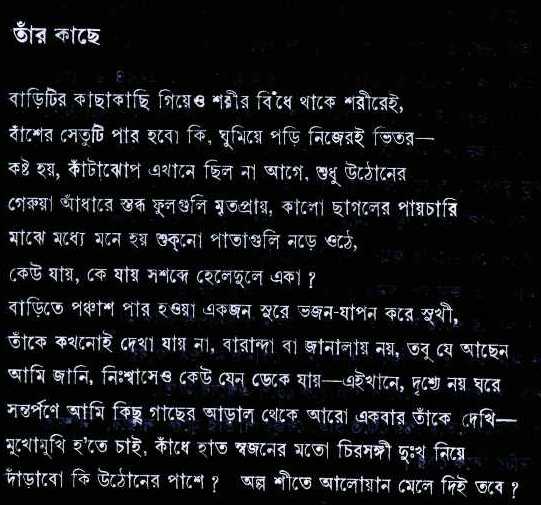 তাঁর কাছে
বাড়িটির কাছাকাছি গিয়েও শরীর বিঁধে থাকে শরীরেই,
বাঁশের সেতুটি পার হবো কি, ঘুমিয়ে পড়ি নিজেরই ভিতর—
কষ্ট হয়, কাঁটাঝোপ এখানে ছিল না আগে, শুধু উঠোনের
গেরুয়া আঁধারে স্তব্ধ ফুলগুলি মৃতপ্রায়, কালো ছাগলের পায়চারি
মাঝে মধ্যে মনে হয় শুকনো পাতাগুলি নড়ে ওঠে,
কেউ যায়, কে যায় সশব্দে হেলেদুলে একা ?
বাড়িতে পঞ্চাশ পার হওয়া একজন সুরে ভজন-যাপন করে সুখী,
তাঁকে কখনোই দেখা যায় না, বারান্দা বা জানালায় নয়, তবু যে আছেন
আমি জানি, নিঃশ্বাসেও কেউ যেন ডেকে যায়—এইখানে, দৃশ্যে নয় ঘরে
সন্তর্পণে আমি কিছু গাছের আড়াল থেকে আরো একবার তাঁকে দেখি—
মুখোমুখি হ'তে চাই, কাঁধে হাত স্বজনের মতো চিরসঙ্গী দুঃখ নিয়ে
দাঁড়াবো কি উঠোনের পাশে ? অল্প শীতে আলোয়ান মেলে দিই তবে ?